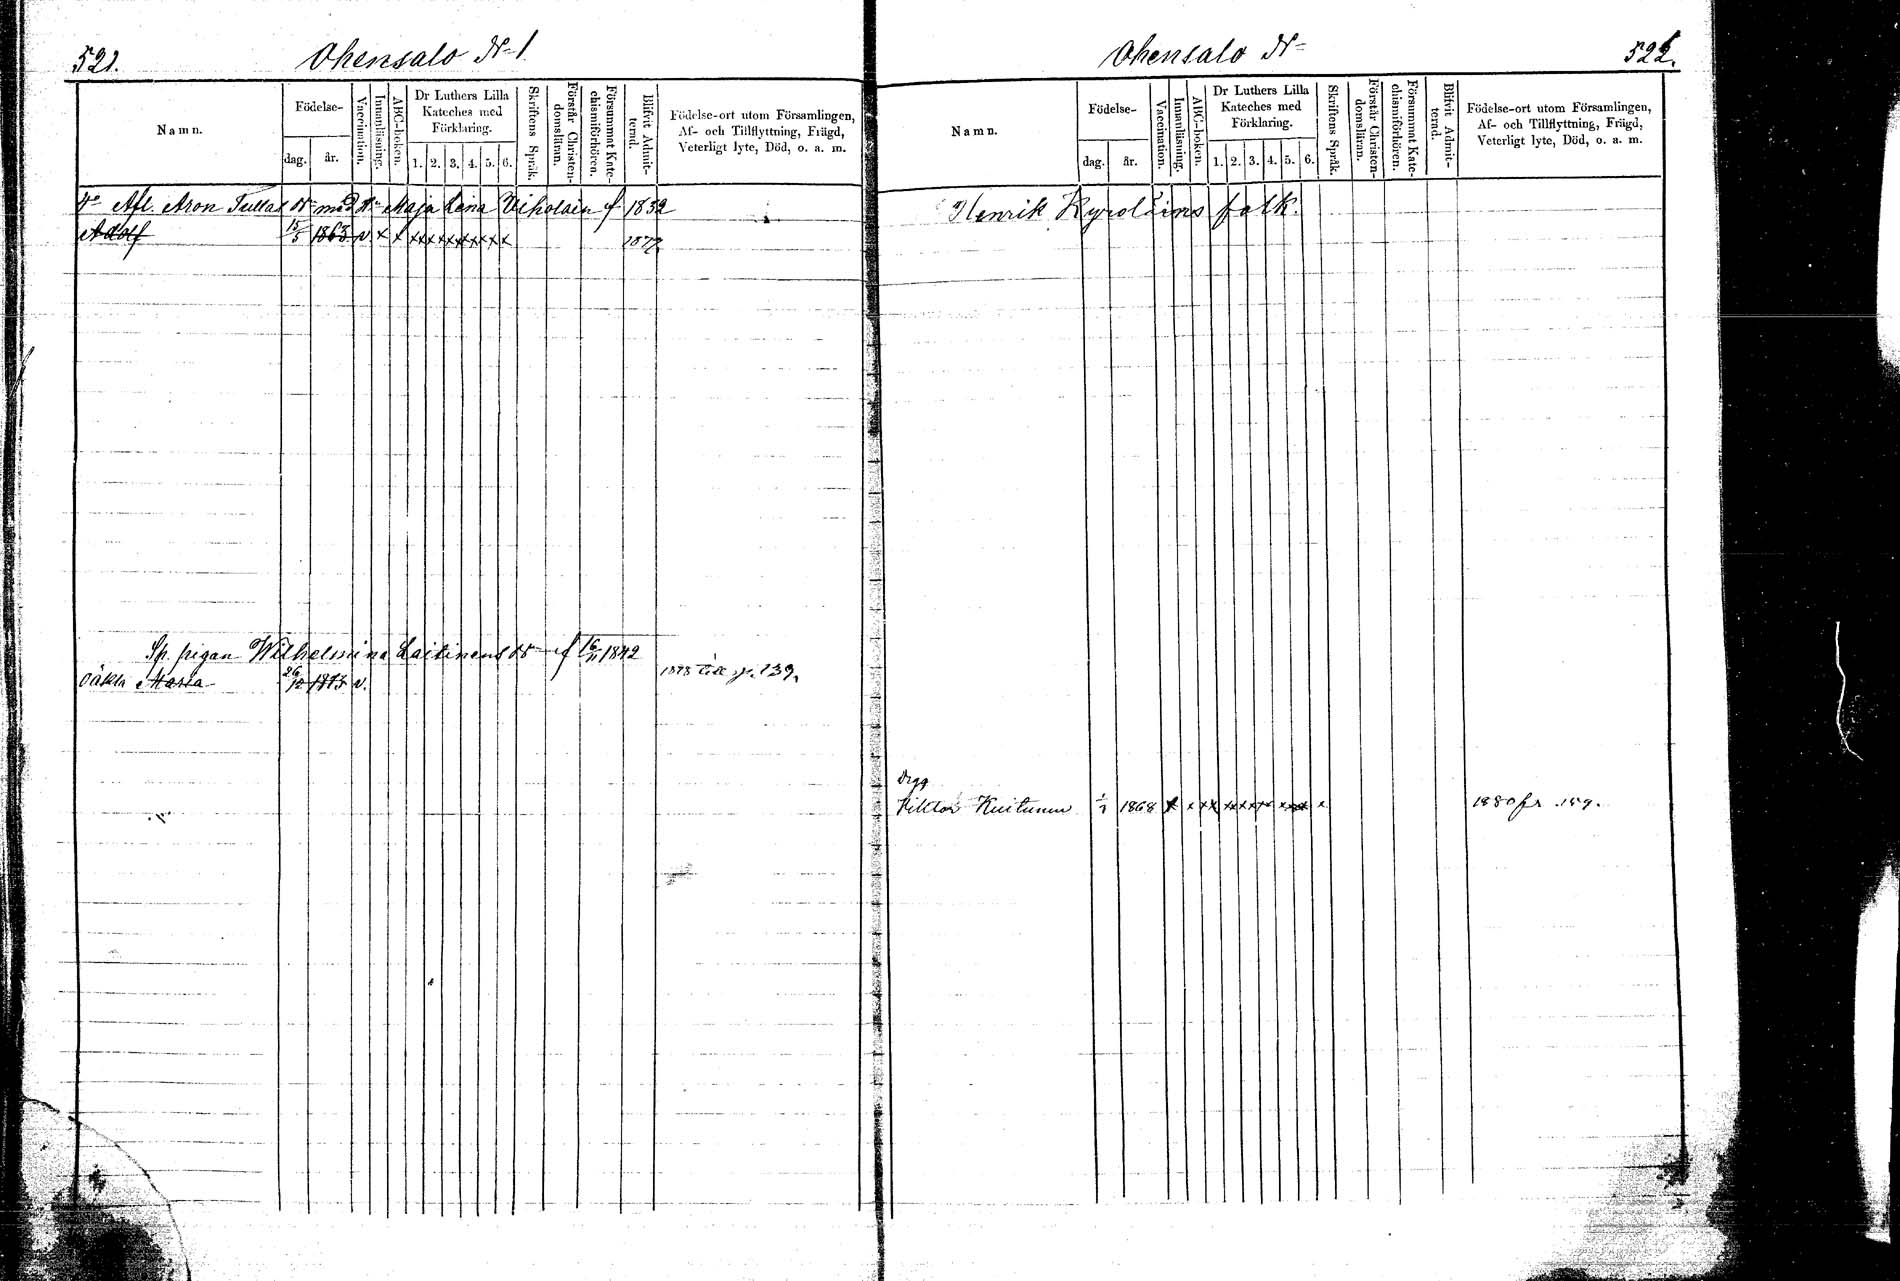 521.
Ohensalo N 1
Namn.
Födelse-
dag.
år.
Vaccination.
Innanläsning.
ABC-boken.
Dr Luthers Lilla
Kateches med
Förklaring.
1. 2. 3. 4. 5. 6.
Skriftens Språk.
Förstår Christen-
domsläran.
Försummat Kate-
chismiförhören.
Blifvit Admit-
terad.
Födelse-ort utom Församlingen,
Af- och Tillflyttning, Frägd,
Veterligt lyte, Död, o. a. m.
Afl. Aron med Maja Lena f 1832
Adolf 15/5 1863 v. x x xxx xxxxxxx 1872
Sp. pigan Wilhelmina Laitinens f 16/11 1842
oäkta Maria 26/12 1873 v. 1878 till p. 139.
522.
Ohensalo N
Namn.
Födelse-
dag.
år.
Vaccination.
Innanläsning.
ABC-boken.
Dr Luthers Lilla
Kateches med
Förklaring.
1. 2. 3. 4. 5. 6.
Skriftens Språk.
Förstår Christen-
domsläran.
Försummat Kate-
chismiförhören.
Blifvit Admit-
terad.
Födelse-ort utom Församlingen,
Af- och Tillflyttning, Frägd,
Veterligt lyte, Död, o. a. m.
Henrik Kyroläins folk.
Drgg
Viktor Kuitunen 1868 x x xxx xxxxx xxx x 1880 fr 159.